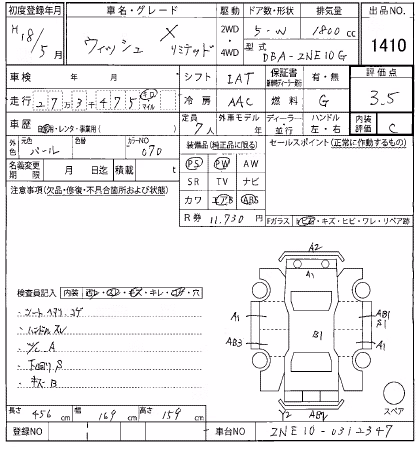 初度登録年月 車名・グレード 駆動 ドア数・形状 排気量 出品NO.
H18/5月 ウィッシュ X リミテッド 2WD・4WD 5-W 1800cc 1410
型式 DBA-ZNE10G
車検 年 月 シフト IAT 保証書 有・無 評価点
走行 27万3千475 キロ マイル 冷房 AAC 燃料 G 3.5
車歴 自家用・レンタ・事業用( ) 定員 7人 外車モデル 年 ディーラー・並行 ハンドル 左・右 内装評価 C
外色 元色 パール カラーNO 070 装備品(純正品に限る) セールスポイント(正常に作動するもの)
PS PW AW
名義変更期限 月 日迄 積載 t SR TV ナビ
注意事項(欠品・修復・不具合箇所および状態) カワ エアB ABS
R券 11,730円 Fガラス トビ石・キズ・ヒビ・ワレ・リペア跡
A2
A1
検査員記入 内装
A1 B1 AB1 S1
・シートヘタリ、コゲ
・ハンドルスレ AB3 A1
・ソノA
・下回りS
・キズB
長さ 456cm 幅 169cm 高さ 159cm Y2 AB1 スペア
登録NO 車台NO ZNE10-0312347